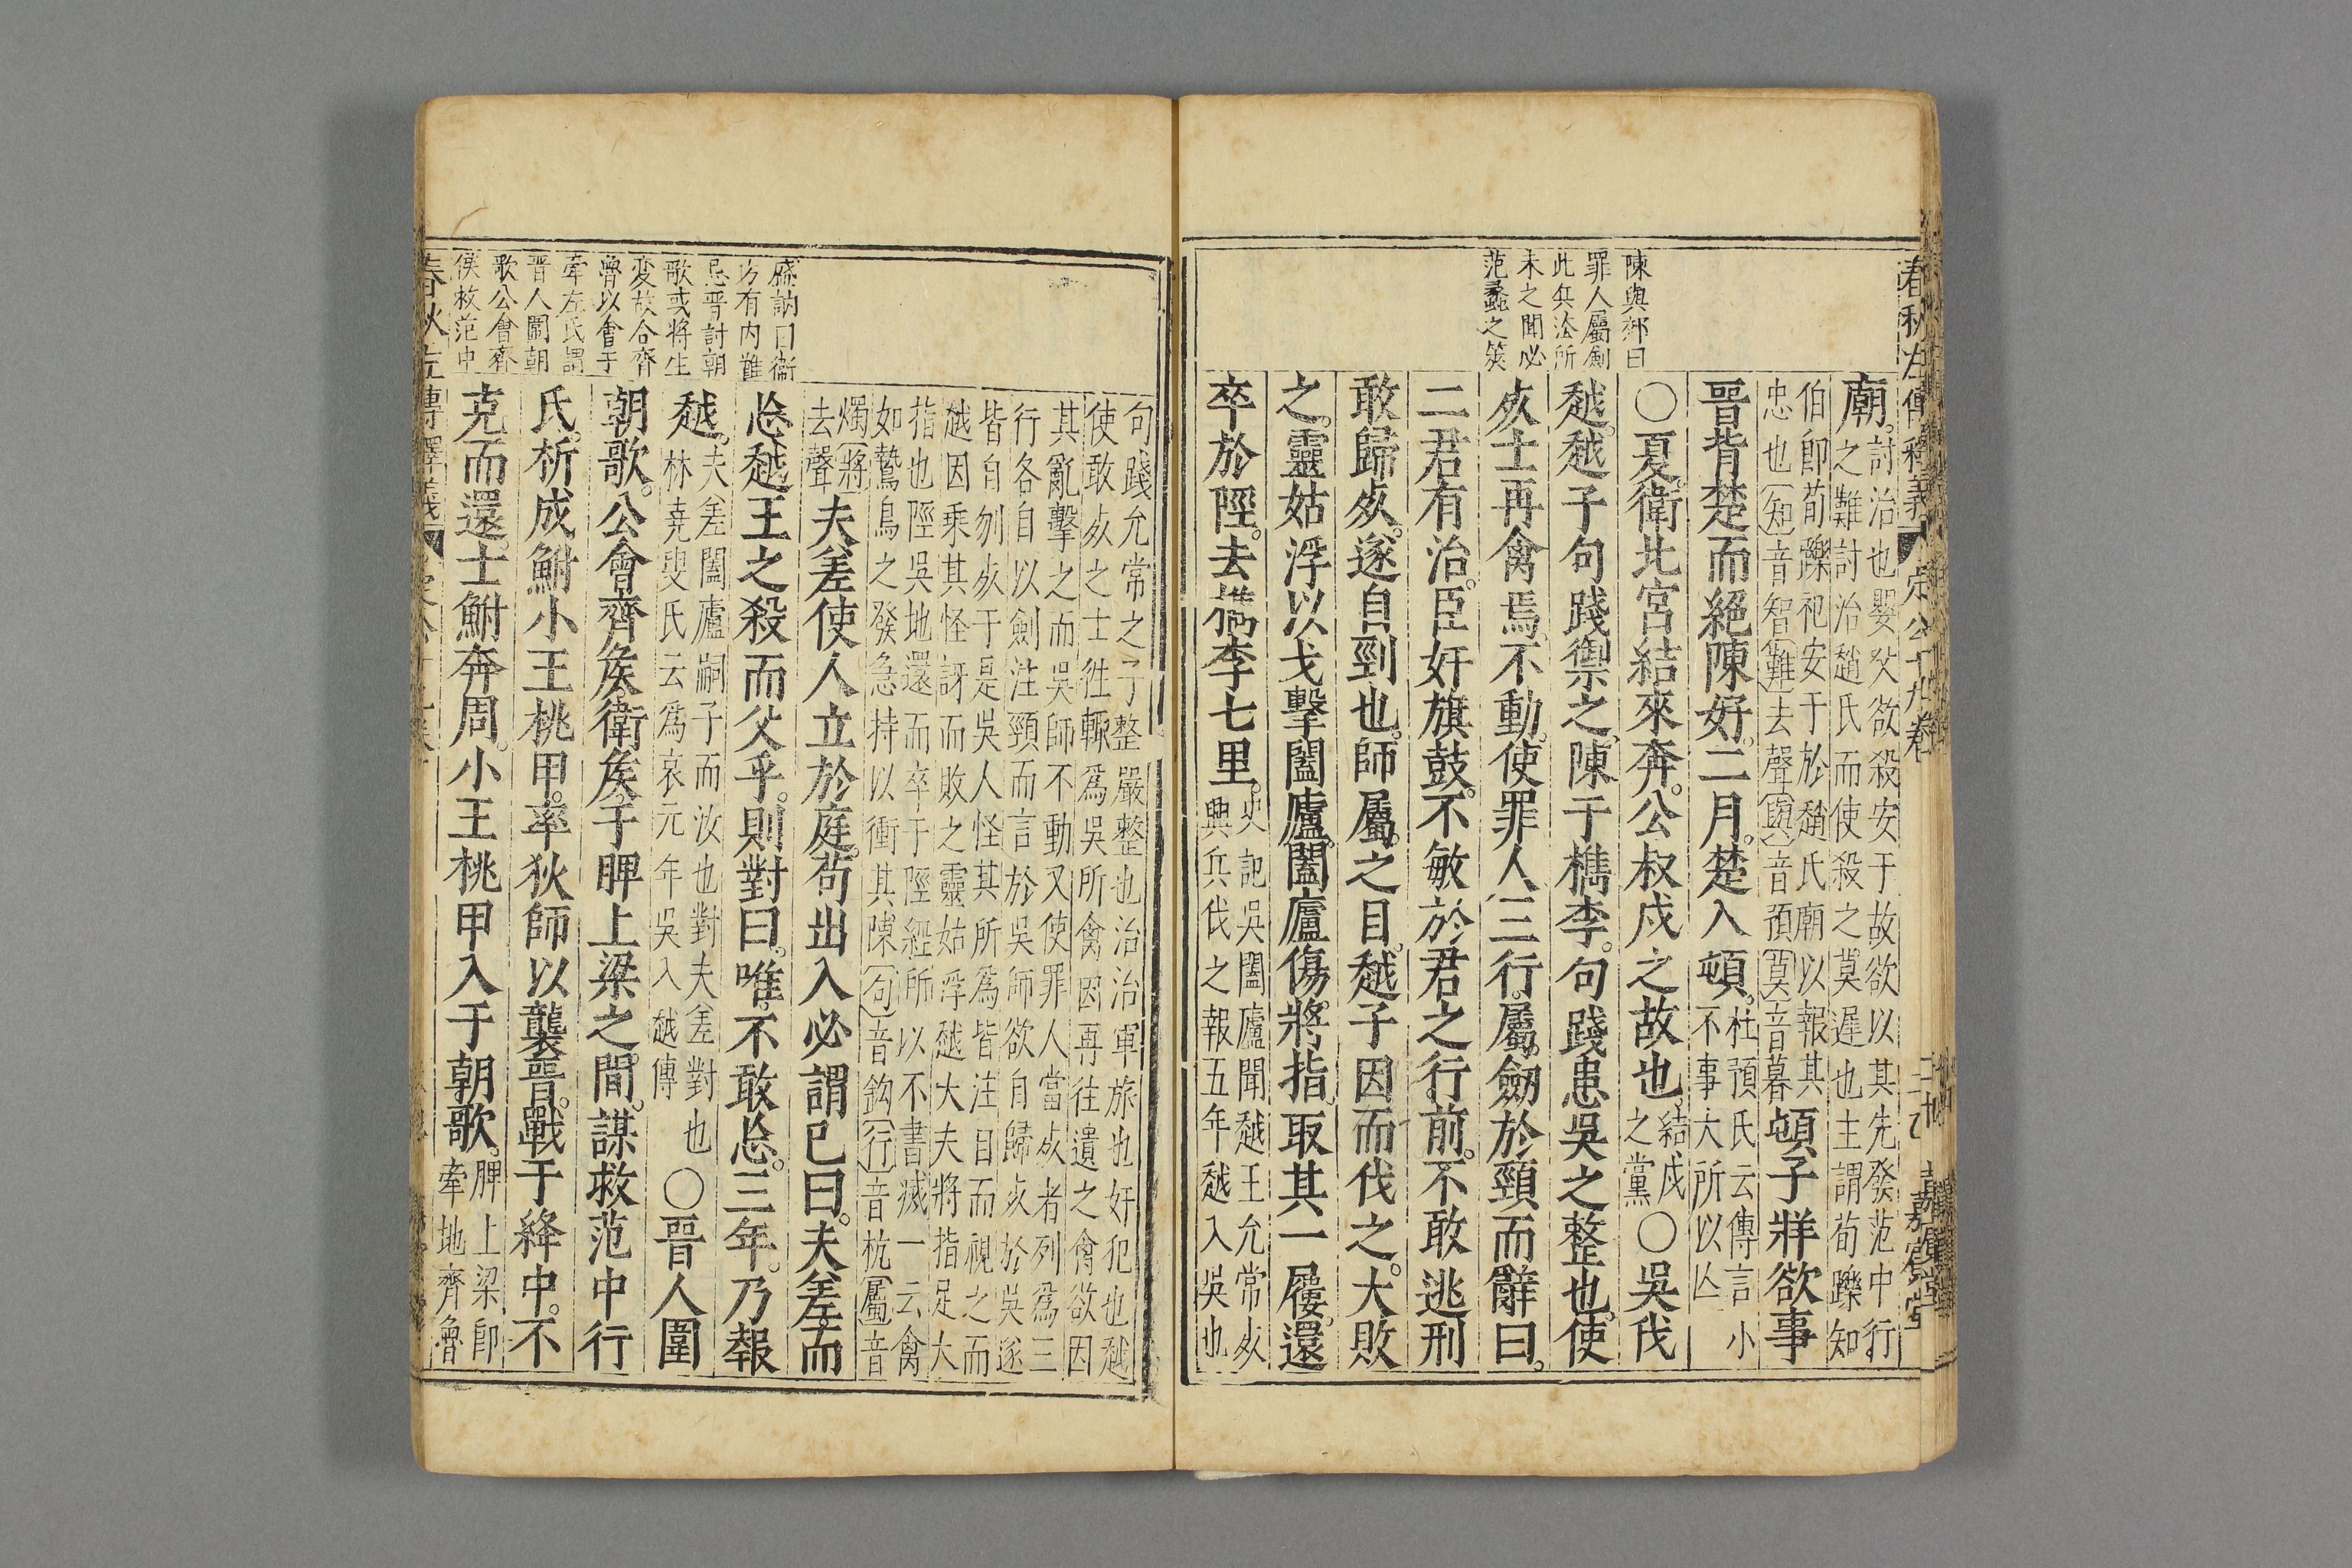 春秋左傳釋義
定公十九卷
嘉賓堂
陳與郊曰
罪人屬劍
此兵法所
未之聞必
范蠡之筴
廟。討治也嬰父欲殺安于故欲以其先發范中行
之難討治趙氏而使殺之莫遲也主謂荀躒知
伯卽荀躒祀安于於趙氏廟以報其
忠也(知)音智(難)去聲(與)音預(莫)音暮頓子牂欲事
晉背楚而絕陳好。二月。楚入頓。杜預氏云傳言小
不事大所以亾
○夏。衛北宮結來奔。公叔戍之故也。結戍
之黨○吳伐
越。越子句踐禦之、陳于檇李。句踐患吳之整也。使
死士再禽焉。不動。使罪人三行。屬劒於頸而辭曰。
二君有治。臣奸旗鼓。不敏於君之行前。不敢逃刑
敢歸死。遂自剄也。師屬之目。越子因而伐之。大敗
之。靈姑浮以戈擊闔廬。闔廬傷。將指。取其一屨。還
卒於陘。去檇李七里。史記吳闔廬聞越王允常死
興兵伐之報五年越入吳也
句踐允常之子整嚴整也治治軍旅也奸犯也越
使敢死之士徃輒爲吳所禽因再往遺之禽欲因
其亂擊之而吳師不動又使罪人當死者列爲三
行各自以劍注頸而言於吳師欲自歸死於吳遂
皆自刎死于是吳人怪其所爲皆注目而視之而
越因乘其怪訝而敗之靈姑浮越大夫將指足大
指也陘吳地還而卒于陘經所以不書滅一云禽
如鷙鳥之發急持以衝其陳(句)音鉤(行)音杭(屬)音
燭(將)
去聲夫差使人立於庭。苟出入必謂已曰。夫差。而
忘越王之殺而父乎。則對曰。唯。不敢忘。三年。乃報
越。夫差闔廬嗣子而汝也對夫差對也
林堯叟氏云爲哀元年吳入越傳○晉人圍
朝歌。公會齊侯衛侯。于脾上梁之間。謀救范中行
氏。析成鮒小王桃甲。率狄師以襲晉。戰于絳中。不
克而還。士鮒奔周。小王桃甲入于朝歌。脾上梁卽
牽地齊魯
盛訥曰衞
方有内難
忌晉討朝
歌或將生
变故合齊
魯以會于
牽左氏謂
晋人圍朝
歌公會齊
侯救范中